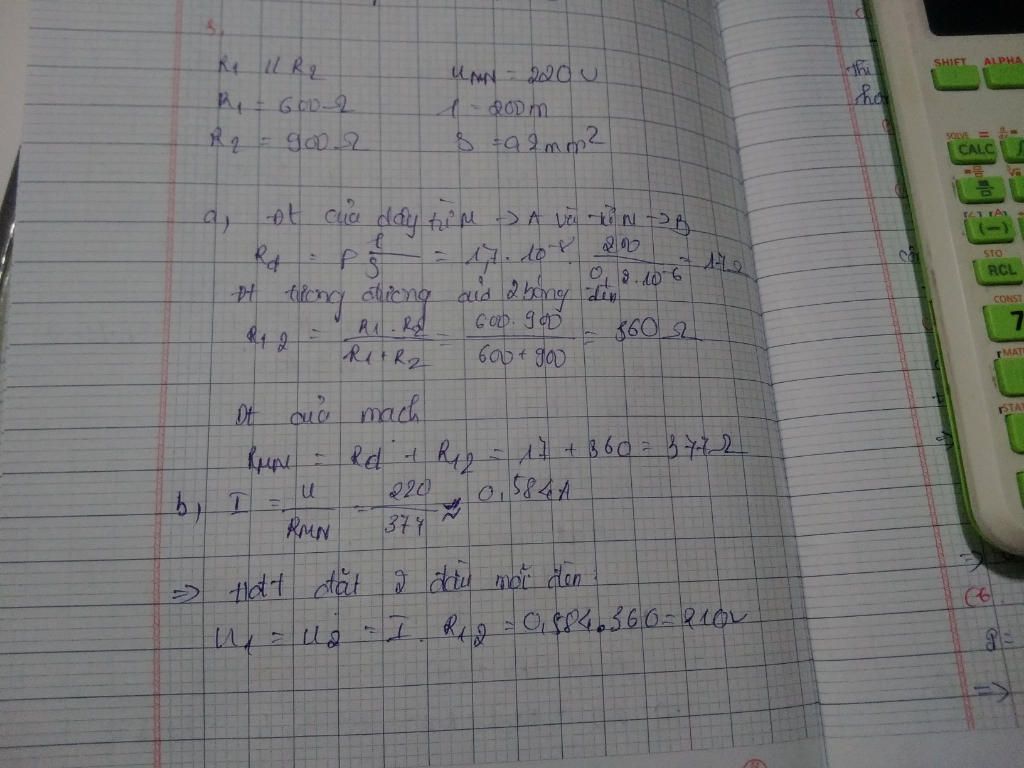 3,
R1 // R2 UMN = 220V
R1 = 600Ω l = 200m
R2 = 900Ω S = 0,2mm²
a, Đt của dây từ M -> A và từ N -> B
Rd = ρ l/S = 1,7.10⁻⁸. 200/0,2.10⁻⁶ = 17Ω
Đt tương đương của 2 bóng đèn
R12 = R1.R2/R1+R2 = 600.900/600+900 = 360Ω
Đt của mạch
RMN = Rd + R12 = 17 + 360 = 377Ω
b, I = U/RMN = 220/377 ≈ 0,584A
=> Hđt đặt 2 đầu mỗi đèn
U1 = U2 = I. R12 = 0,584.360 = 210V
SHIFT ALPHA
SOLVE =
CALC
(-)
STO
RCL
CONST
7
MAT
STAT
=>
C6
=>